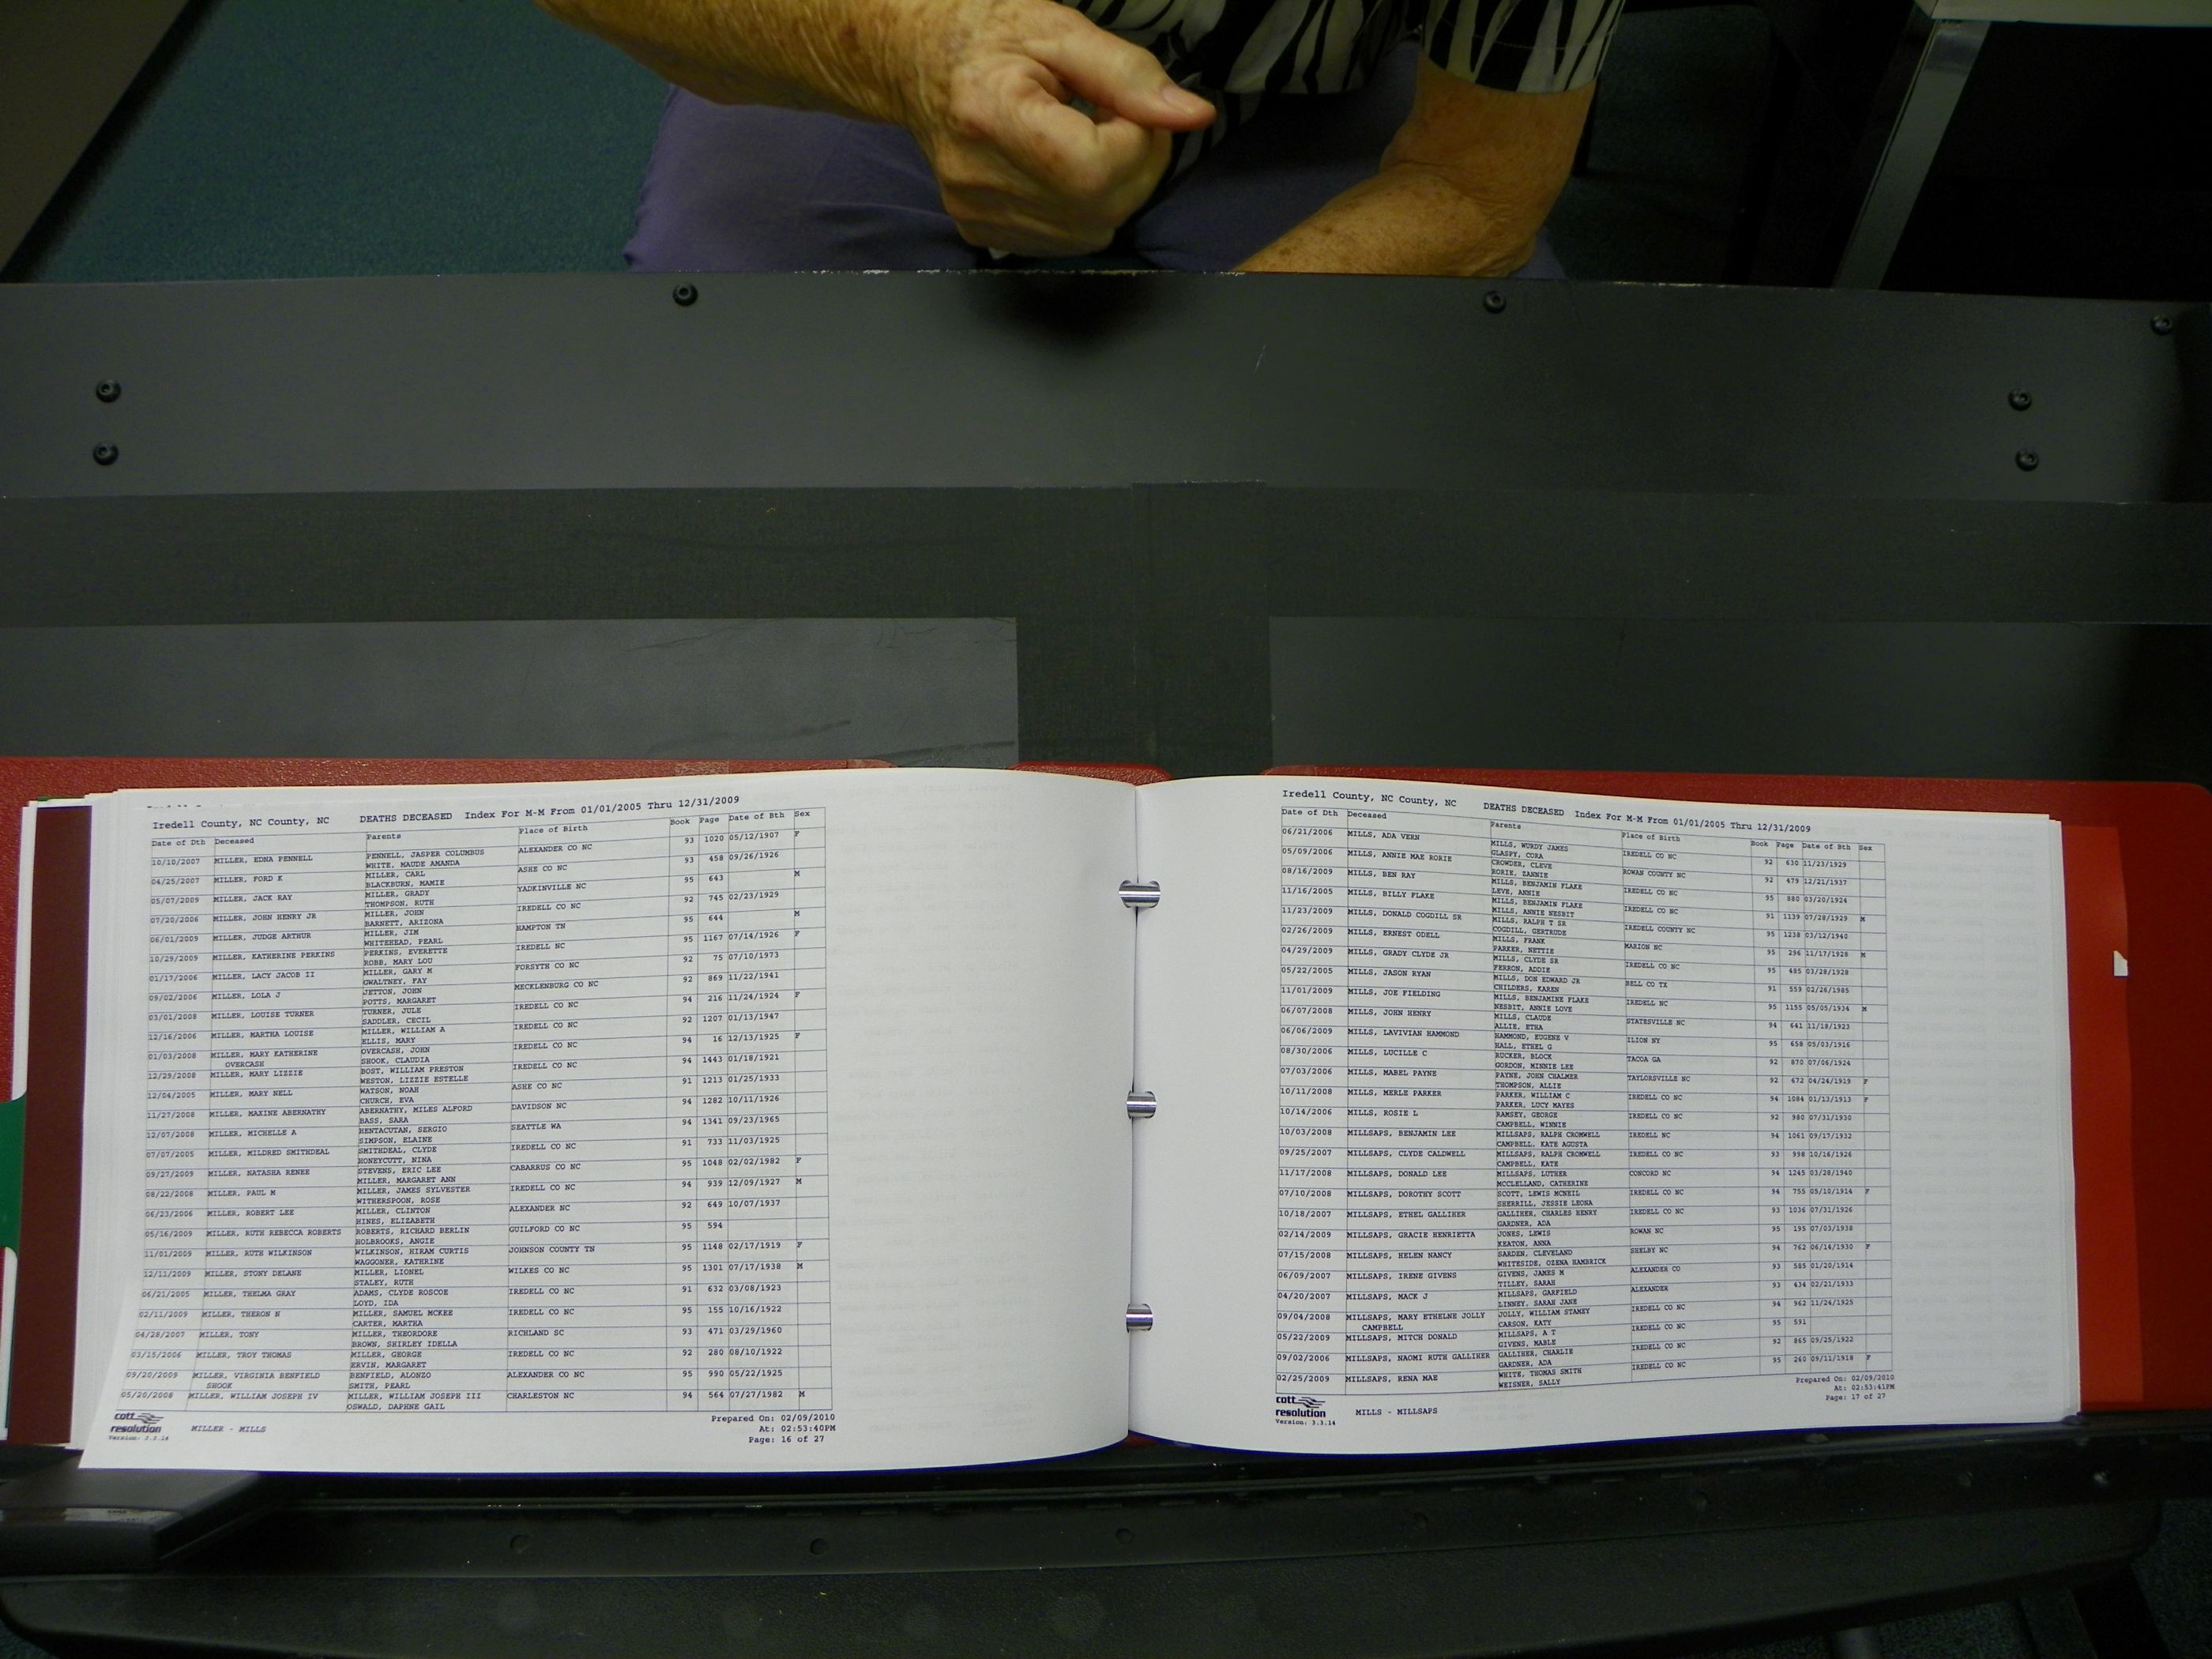 Iredell County, NC County, NC DEATHS DECEASED Index For M-M From 01/01/2005 Thru 12/31/2009
Date of Dth Deceased Parents Place of Birth Book Page Date of Bth Sex
10/10/2007 MILLER, EDNA PENNELL PENNELL, JASPER COLUMBUS ALEXANDER CO NC 93 1020 05/12/1907 F
WHITE, MAUDE AMANDA
04/25/2007 MILLER, FORD K MILLER, CARL ASHE CO NC 93 458 09/26/1926
BLACKBURN, MAMIE
05/07/2009 MILLER, JACK RAY MILLER, GRADY YADKINVILLE NC 95 643 M
THOMPSON, RUTH
07/20/2006 MILLER, JOHN HENRY JR MILLER, JOHN IREDELL CO NC 92 745 02/23/1929
BARNETT, ARIZONA
06/01/2009 MILLER, JUDGE ARTHUR MILLER, JIM HAMPTON TN 95 644 M
WHITEHEAD, PEARL
10/29/2009 MILLER, KATHERINE PERKINS PERKINS, EVERETTE IREDELL NC 95 1167 07/14/1926 F
ROBB, MARY LOU
01/17/2006 MILLER, LACY JACOB II MILLER, GARY M FORSYTH CO NC 92 75 07/10/1973
GWALTNEY, FAY
09/02/2006 MILLER, LOLA J JETTON, JOHN MECKLENBURG CO NC 92 869 11/22/1941
POTTS, MARGARET
03/01/2008 MILLER, LOUISE TURNER TURNER, JULE IREDELL CO NC 94 216 11/24/1924 F
SADDLER, CECIL
12/16/2006 MILLER, MARTHA LOUISE MILLER, WILLIAM A IREDELL CO NC 92 1207 01/13/1947
ELLIS, MARY
01/03/2008 MILLER, MARY KATHERINE OVERCASH, JOHN IREDELL CO NC 94 16 12/13/1925 F
OVERCASH SHOOK, CLAUDIA
12/29/2008 MILLER, MARY LIZZIE BOST, WILLIAM PRESTON IREDELL CO NC 94 1443 01/18/1921
WESTON, LIZZIE ESTELLE
12/04/2005 MILLER, MARY NELL WATSON, NOAH ASHE CO NC 91 1213 01/25/1933
CHURCH, EVA
11/27/2008 MILLER, MAXINE ABERNATHY ABERNATHY, MILES ALFORD DAVIDSON NC 94 1282 10/11/1926
BASS, SARA
12/07/2008 MILLER, MICHELLE A HENTACUTAN, SERGIO SEATTLE WA 94 1341 09/23/1965
SIMPSON, ELAINE
07/07/2005 MILLER, MILDRED SMITHDEAL SMITHDEAL, CLYDE IREDELL CO NC 91 733 11/03/1925
HONEYCUTT, NINA
09/27/2009 MILLER, NATASHA RENEE STEVENS, ERIC LEE CABARRUS CO NC 95 1048 02/02/1982 F
MILLER, MARGARET ANN
08/22/2008 MILLER, PAUL M MILLER, JAMES SYLVESTER IREDELL CO NC 94 939 12/09/1927 M
WITHERSPOON, ROSE
06/23/2006 MILLER, ROBERT LEE MILLER, CLINTON ALEXANDER NC 92 649 10/07/1937
HINES, ELIZABETH
05/16/2009 MILLER, RUTH REBECCA ROBERTS ROBERTS, RICHARD BERLIN GUILFORD CO NC 95 594
HOLBROOKS, ANGIE
11/01/2009 MILLER, RUTH WILKINSON WILKINSON, HIRAM CURTIS JOHNSON COUNTY TN 95 1148 02/17/1919 F
WAGGONER, KATHRINE
12/11/2009 MILLER, STONY DELANE MILLER, LIONEL WILKES CO NC 95 1301 07/17/1938 M
STALEY, RUTH
06/21/2005 MILLER, THELMA GRAY ADAMS, CLYDE ROSCOE IREDELL CO NC 91 632 03/08/1923
LOYD, IDA
02/11/2009 MILLER, THERON N MILLER, SAMUEL MCKEE IREDELL CO NC 95 155 10/16/1922
CARTER, MARTHA
04/28/2007 MILLER, TONY MILLER, THEORDORE RICHLAND SC 93 471 03/29/1960
BROWN, SHIRLEY IDELLA
03/15/2006 MILLER, TROY THOMAS MILLER, GEORGE IREDELL CO NC 92 280 08/10/1922
ERVIN, MARGARET
09/20/2009 MILLER, VIRGINIA BENFIELD BENFIELD, ALONZO ALEXANDER CO NC 95 990 05/22/1925
SHOOK SMITH, PEARL
05/20/2008 MILLER, WILLIAM JOSEPH IV MILLER, WILLIAM JOSEPH III CHARLESTON NC 94 564 07/27/1982 M
OSWALD, DAPHNE GAIL
cott
resolution MILLER - MILLS
Version: 3.3.14
Prepared On: 02/09/2010
At: 02:53:40PM
Page: 16 of 27
Iredell County, NC County, NC DEATHS DECEASED Index For M-M From 01/01/2005 Thru 12/31/2009
Date of Dth Deceased Parents Place of Birth Book Page Date of Bth Sex
06/21/2006 MILLS, ADA VERN MILLS, WURDY JAMES IREDELL CO NC 92 630 11/23/1929
GLASPY, CORA
05/09/2006 MILLS, ANNIE MAE RORIE CROWDER, CLEVE ROWAN COUNTY NC 92 479 12/21/1937
RORIE, ZANNIE
08/16/2009 MILLS, BEN RAY MILLS, BENJAMIN FLAKE IREDELL CO NC 95 880 03/20/1924
LEVE, ANNIE
11/16/2005 MILLS, BILLY FLAKE MILLS, BENJAMIN FLAKE IREDELL CO NC 91 1139 07/28/1929 M
MILLS, ANNIE NESBIT
11/23/2009 MILLS, DONALD COGDILL SR MILLS, RALPH T SR IREDELL COUNTY NC 95 1238 03/12/1940
COGDILL, GERTRUDE
02/26/2009 MILLS, ERNEST ODELL MILLS, FRANK MARION NC 95 296 11/17/1928 M
PARKER, NETTIE
04/29/2009 MILLS, GRADY CLYDE JR MILLS, CLYDE SR IREDELL CO NC 95 485 03/28/1928
FERRON, ADDIE
05/22/2005 MILLS, JASON RYAN MILLS, DON EDWARD JR BELL CO TX 91 559 02/26/1985
CHILDERS, KAREN
11/01/2009 MILLS, JOE FIELDING MILLS, BENJAMINE FLAKE IREDELL NC 95 1155 05/05/1934 M
NESBIT, ANNIE LOVE
06/07/2008 MILLS, JOHN HENRY MILLS, CLAUDE STATESVILLE NC 94 641 11/18/1923
ALLIE, ETHA
06/06/2009 MILLS, LAVIVIAN HAMMOND HAMMOND, EUGENE V ILION NY 95 658 05/03/1916
HALL, ETHEL G
08/30/2006 MILLS, LUCILLE C RUCKER, BLOCK TACOA GA 92 870 07/06/1924
GORDON, MINNIE LEE
07/03/2006 MILLS, MABEL PAYNE PAYNE, JOHN CHALMER TAYLORSVILLE NC 92 672 04/24/1919 F
THOMPSON, ALLIE
10/11/2008 MILLS, MERLE PARKER PARKER, WILLIAM C IREDELL CO NC 94 1084 01/13/1913 F
PARKER, LUCY MAYES
10/14/2006 MILLS, ROSIE L RAMSEY, GEORGE IREDELL CO NC 92 980 07/31/1930
CAMPBELL, WINNIE
10/03/2008 MILLSAPS, BENJAMIN LEE MILLSAPS, RALPH CROMWELL IREDELL NC 94 1061 09/17/1932
CAMPBELL, KATE AGUSTA
09/25/2007 MILLSAPS, CLYDE CALDWELL MILLSAPS, RALPH CROMWELL IREDELL CO NC 93 998 10/16/1926
CAMPBELL, KATE
11/17/2008 MILLSAPS, DONALD LEE MILLSAPS, LUTHER CONCORD NC 94 1245 03/28/1940
MCCLELLAND, CATHERINE
07/10/2008 MILLSAPS, DOROTHY SCOTT SCOTT, LEWIS MCNEIL IREDELL CO NC 94 755 05/10/1914 F
SHERRILL, JESSIE LEONA
10/18/2007 MILLSAPS, ETHEL GALLIHER GALLIHER, CHARLES HENRY IREDELL CO NC 93 1036 07/31/1926
GARDNER, ADA
02/14/2009 MILLSAPS, GRACIE HENRIETTA JONES, LEWIS ROWAN NC 95 195 07/03/1938
KEATON, ANNA
07/15/2008 MILLSAPS, HELEN NANCY SARDEN, CLEVELAND SHELBY NC 94 762 06/14/1930 F
WHITESIDE, OZENA HAMBRICK
06/09/2007 MILLSAPS, IRENE GIVENS GIVENS, JAMES M ALEXANDER CO 93 585 01/20/1914
TILLEY, SARAH
04/20/2007 MILLSAPS, MACK J MILLSAPS, GARFIELD ALEXANDER 93 434 02/21/1933
LINNEY, SARAH JANE
09/04/2008 MILLSAPS, MARY ETHELNE JOLLY JOLLY, WILLIAM STAMEY IREDELL CO NC 94 962 11/24/1925
CAMPBELL CARSON, KATY
05/22/2009 MILLSAPS, MITCH DONALD MILLSAPS, A T IREDELL CO NC 95 591
GIVENS, MABLE
09/02/2006 MILLSAPS, NAOMI RUTH GALLIHER GALLIHER, CHARLIE IREDELL CO NC 92 865 09/25/1922
GARDNER, ADA
02/25/2009 MILLSAPS, RENA MAE WHITE, THOMAS SMITH IREDELL CO NC 95 260 09/11/1918 F
WEISNER, SALLY
cott
resolution MILLS - MILLSAPS
Version: 3.3.14
Prepared On: 02/09/2010
At: 02:53:41PM
Page: 17 of 27